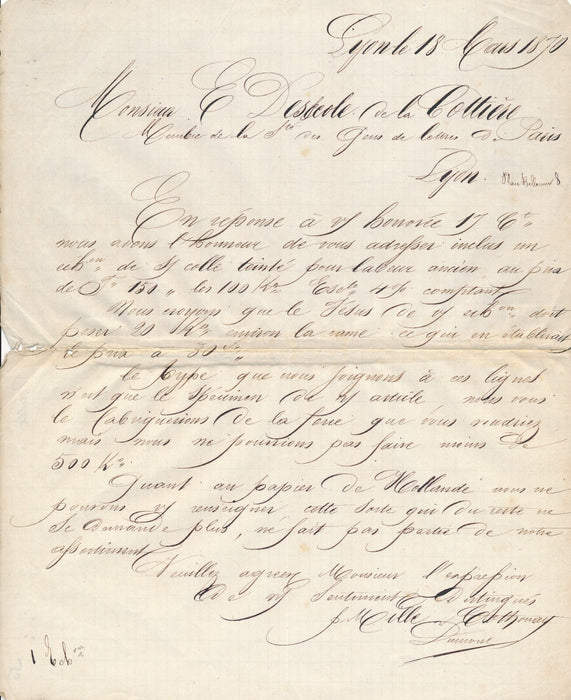 Lyon le 18 Mars 1870
Monsieur E Deslode de la Cottière
Membre de la Sté des Gens de lettres de Paris
Lyon. Place Bellecour 8
En réponse à v/ honorée 17 Ct
nous avons l'honneur de vous adresser inclus un
echon de v/ collé teinté pour labeur ancien au prix
de F 150 " les 100 Kos Escte 4 % comptant
Nous croyons que le Jésus de v/ echon doit
peser 20 Kos environ la rame ce qui en établirait
le prix à 30
le type que nous joignons à ces lignes
n'est que le spécimen du v/ article nous vous
le fabriquerions de la force que vous voudriez
mais nous ne pourrions pas faire moins de
500 Kos
Quant au papier de Hollande nous ne
pouvons v/ renseigner cette sorte qui du reste ne
se demande plus, ne fait pas partie de notre
assortiment
Veuillez agréer Monsieur l'expression
de n/ Sentiments Distingués
1 Echon